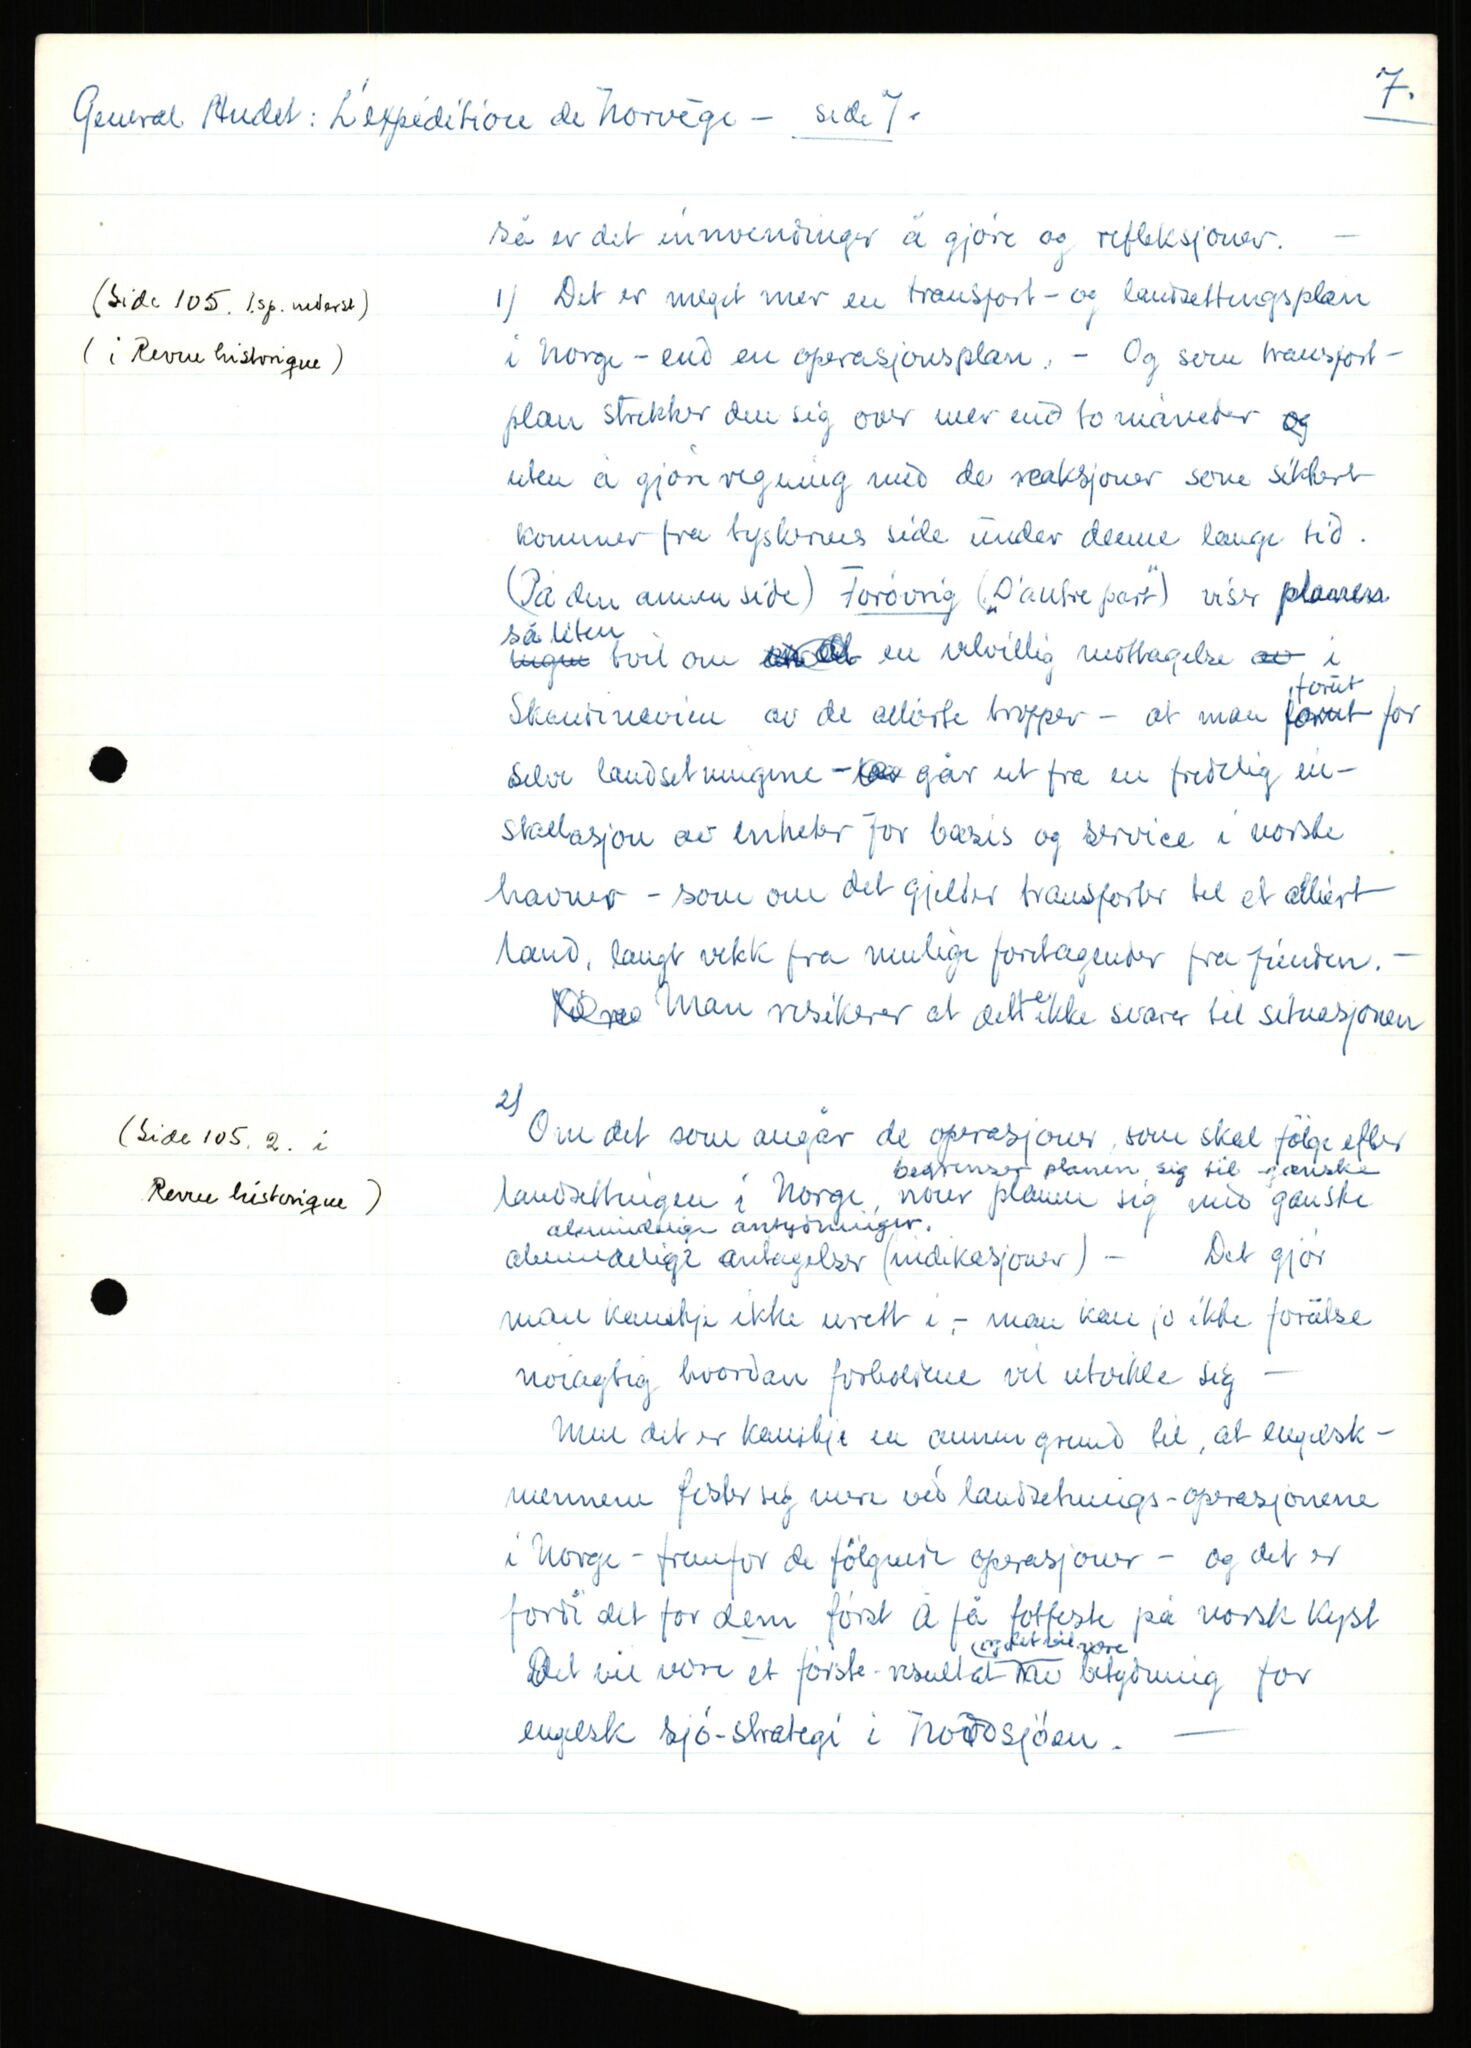 7.
General Audet: L'expédition de Norvège - side 7.
så er det innvendinger å gjøre og refleksjoner. -
(Side 105. 1.sp. nederst)
(i Revue historique)
1) Det er meget mer en transport- og landsettingsplan
i Norge - end en operasjonsplan. - Og som transport-
plan strekker den sig over mer end to måneder og
uten å gjøre regning med de reaksjoner som sikkert
kommer fra tyskernes side under denne lange tid.
(På den annen side) Forøvrig („D'autre part") viser planen
så liten
ingen tvil om en velvillig mottagelse av i
Skandinavien av de allierte tropper - at man forut for
forut
selve landsetningene - går ut fra en fredelig in-
stallasjon av enheter for basis og service i norske
havner - som om det gjelder transporter til et alliert
land, langt vekk fra mulige foretagender fra fienden. -
Man risikerer at dette ikke svarer til situasjonen
(Side 105. 2. i
Revue historique)
2) Om det som angår de operasjoner, som skal følge efter
begrenser planen sig til ganske
landsettingen i Norge, nøier planen sig med ganske
almindelige antydninger.
almindelige antagelser (indikasjoner) - Det gjør
man kanskje ikke urett i, - man kan jo ikke forutse
nøiagtig hvordan forholdene vil utvikle sig -
Men det er kanskje en annen grund til, at engelsk-
mennene fester sig mere ved landsetnings-operasjonene
i Norge - fremfor de følgende operasjoner - og det er
fordi det for dem først å få fotfeste på norsk kyst
(og det vil være
Det vil være et første-resultat av betydning for
engelsk sjø-strategi i Nordsjøen. -